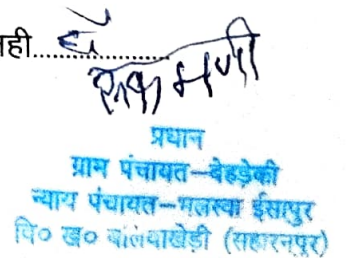 ही.............. है
रुकमणी
प्रधान
ग्राम पंचायत–बेहड़ेकी
न्याय पंचायत–मलस्वा ईसापुर
वि० ख० बलियाखेड़ी (सहारनपुर)